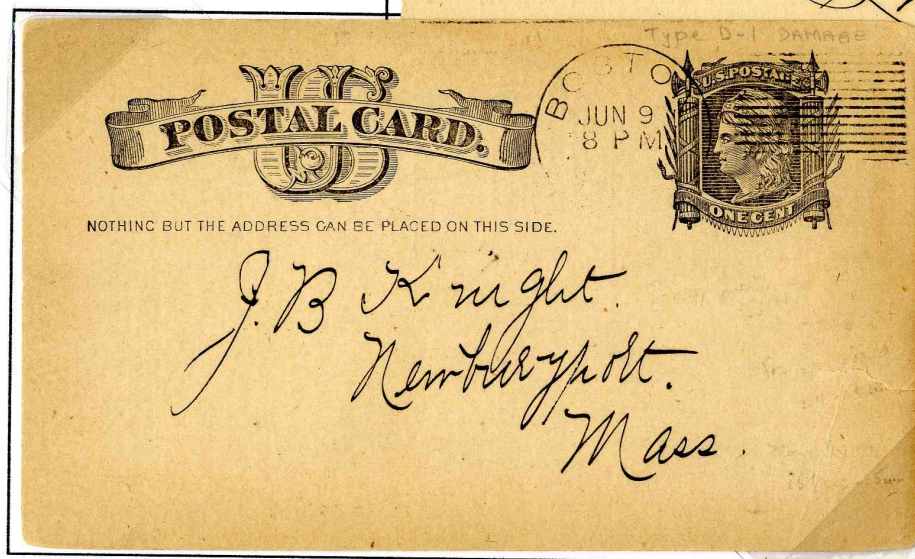 Type D-1 DAMAGE
US
POSTAL CARD.
BOSTO
JUN 9
8 PM
U.S. POSTAGE
ONE CENT
NOTHING BUT THE ADDRESS CAN BE PLACED ON THIS SIDE.
J. B Knight.
Newburyport.
Mass.